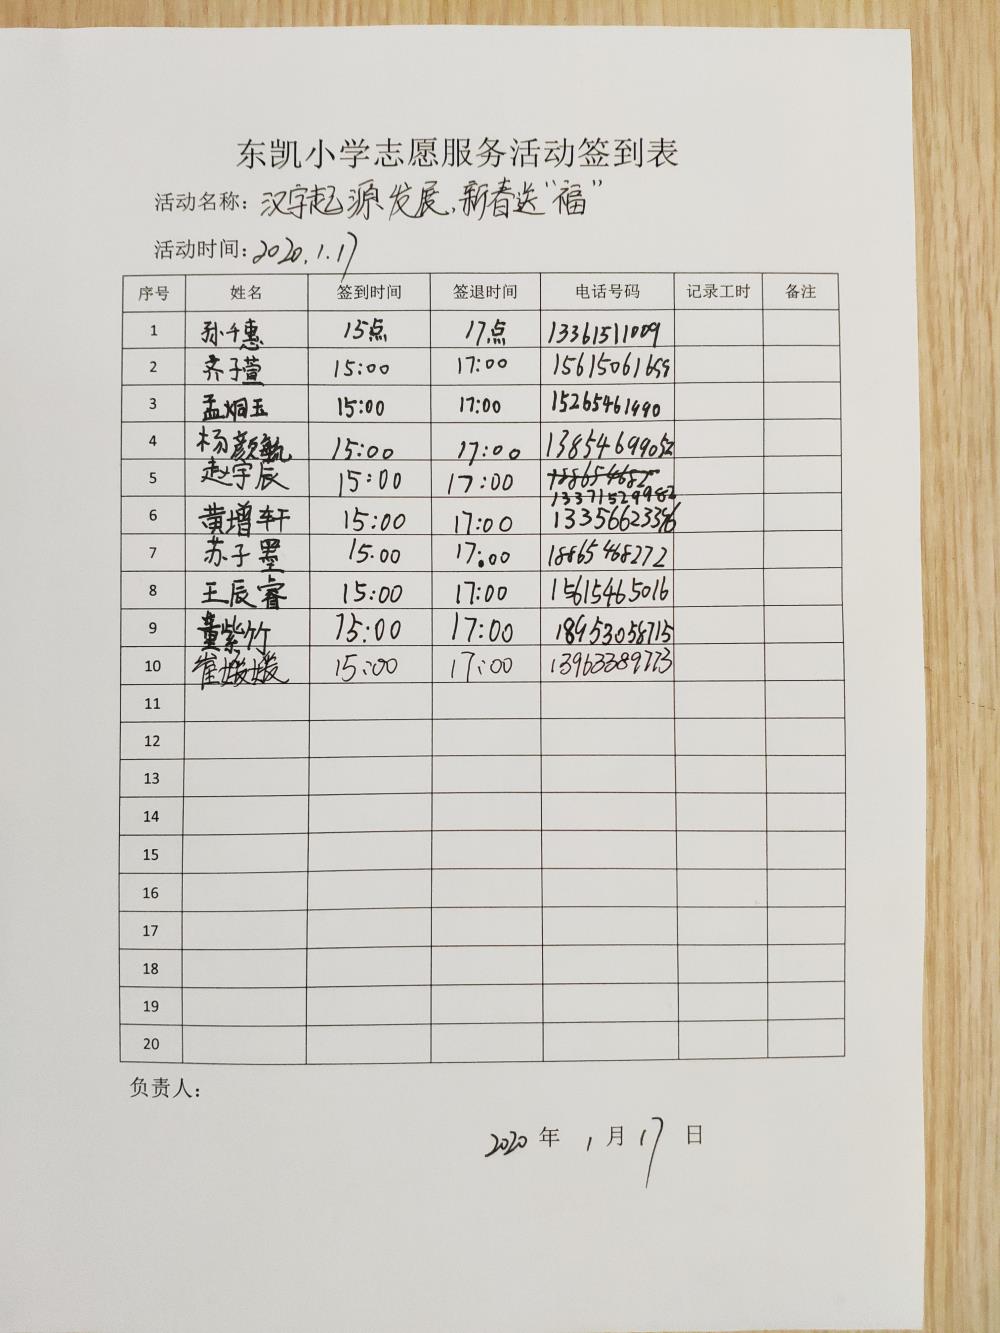 东凯小学志愿服务活动签到表
活动名称：汉字起源发展、新春送“福”
活动时间：2020.1.17
序号 姓名 签到时间 签退时间 电话号码 记录工时 备注
1 孙千惠 15点 17点 13361511009
2 齐子萱 15:00 17:00
3 孟炯玉 15:00 17:00 15265461990
4 杨颜毓 15:00 17:00 13854699052
5 赵宇辰 15:00 17:00
13371529982
6 黄增轩 15:00 17:00
7 苏子墨 15.00 17.00 18865468272
8 王辰睿 15:00 17:00 15615465016
9 童紫竹 15:00 17:00 18953058715
10 崔媛媛 15:00 17:00 13963389773
11
12
13
14
15
16
17
18
19
20
负责人：
2020 年 1 月 17 日